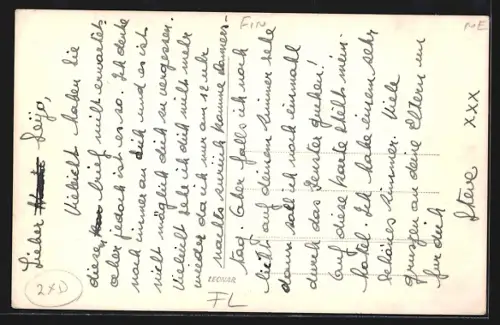 Lieber Seijo,
Vieleicht haben Sie
diesen brief nicht erwartet
aber jedoch ist es so. Ich denke
noch immer an dich und es ist
nicht möglich dich zu vergessen.
Vieleicht sehe ich dich nicht mehr
wieder da ich nur an 12 uhr
nachts zurück komme Donners-
tag. Aber falls ich noch
licht auf deinem Zimmer sehe
dann soll ich noch einmahl
durch das Fenster gucken!
Auf diese Karte steht mein
hotel. Ich habe einen sehr
schönes Zimmer. Viele
grussen an deine Eltern und
für dich
Steve xxx
FIN
NE
2XD
FL